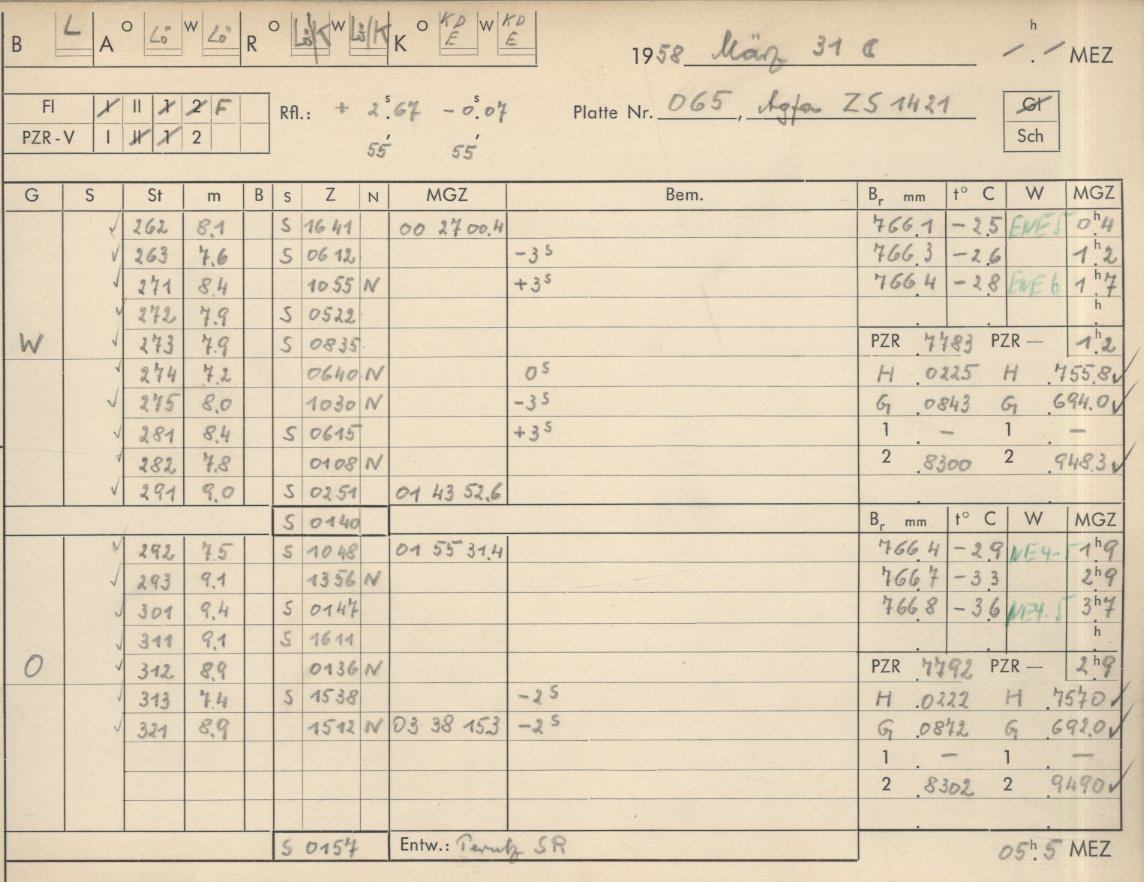 B L A O Lö W Lö R O Lö/K W Lö/K K O KD E W KD E
1958 März 31 h MEZ
FI I II 1 2 F
PZR-V I II 1 2
Rfl.: + 2.s67 - 0.s07
55' 55'
Platte Nr. 065, Agfa ZS 1421
GI
Sch
G S St m B S Z N MGZ Bem. Br mm t° C W MGZ
262 8.1 S 1641 00 27 00.4 766.1 -2.5 ENE5 0h4
263 7.6 S 0612 -3s 766.3 -2.6 1h2
271 8.4 1055 N +3s 766.4 -2.8 ENE6 1h7
272 7.9 S 0522 h
W 273 7.9 S 0835 PZR .7783 PZR — 1h2
274 7.2 0640 N 0s H .0225 H .755.8
275 8.0 1030 N -3s G .0843 G .694.0
281 8.4 S 0615 +3s 1 . — 1 . —
282 7.8 0108 N 2 .8300 2 .948.3
291 9.0 S 0251 01 43 52.6
S 0140 Br mm t° C W MGZ
292 7.5 S 1048 01 55 31.4 766.4 -2.9 NE4-5 1h9
293 9.1 1356 N 766.7 -3.3 2h9
301 9.4 S 0147 766.8 -3.6 NE4-5 3h7
311 9.1 S 1611 h
O 312 8.9 0136 N PZR .7792 PZR — 2h9
313 7.4 S 1538 -2s H .0222 H .757.0
321 8.9 1512 N 03 38 15.3 -2s G .0872 G .692.0
1 . — 1 . —
2 .8302 2 .949.0
S 0157 Entw.: Perutz SR 05h.5 MEZ